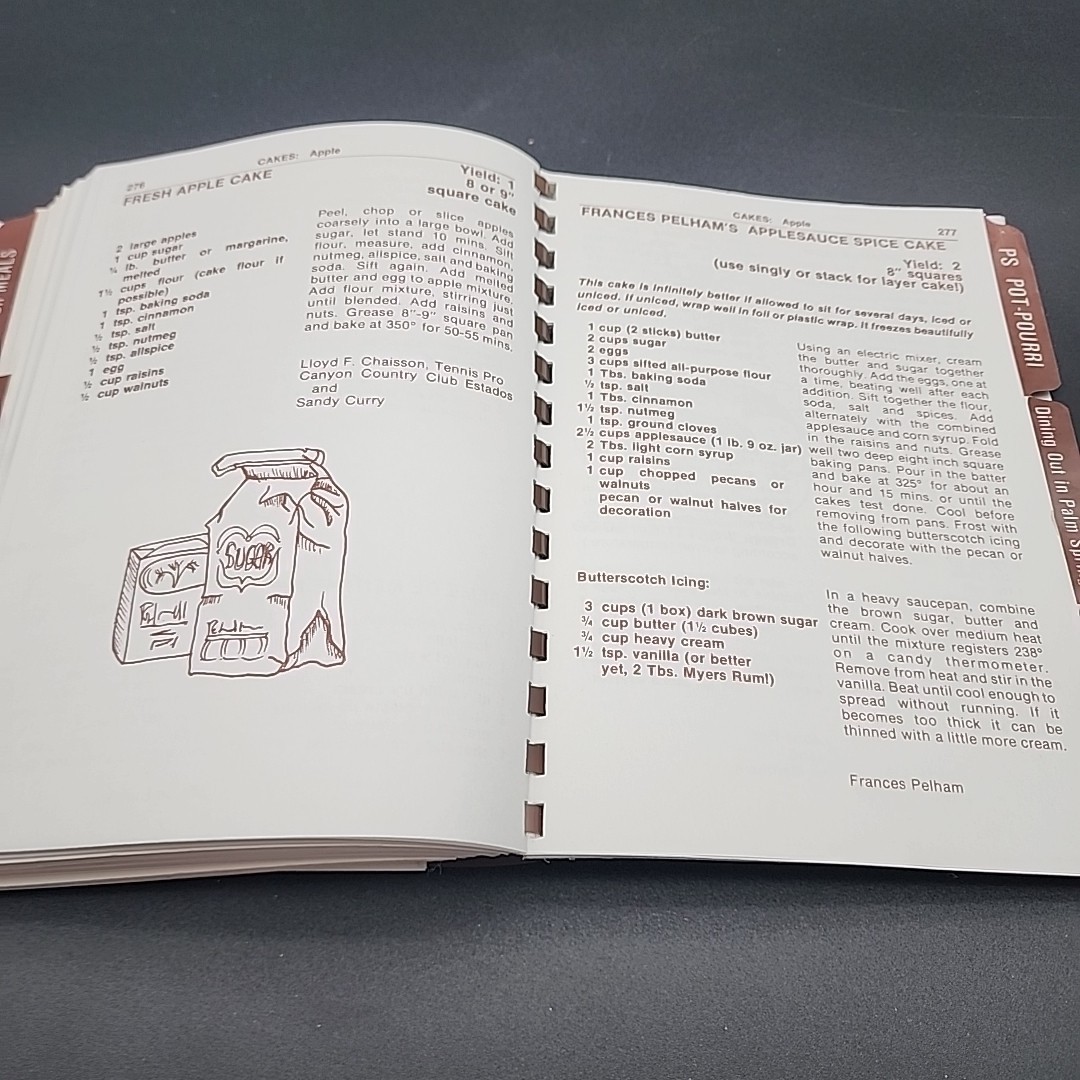 276
CAKES: Apple
FRESH APPLE CAKE
Yield: 1
8 or 9"
square cake
2 large apples
1 cup sugar
¼ lb. butter or margarine,
melted
1½ cups flour (cake flour if
possible)
1 tsp. baking soda
1 tsp. cinnamon
½ tsp. salt
½ tsp. nutmeg
½ tsp. allspice
1 egg
½ cup raisins
½ cup walnuts
Peel, chop or slice apples
coarsely into a large bowl. Add
sugar, let stand 10 mins. Sift
flour, measure, add cinnamon,
nutmeg, allspice, salt and baking
soda. Sift again. Add melted
butter and egg to apple mixture.
Add flour mixture, stirring just
until blended. Add raisins and
nuts. Grease 8"-9" square pan
and bake at 350° for 50-55 mins.
Lloyd F. Chaisson, Tennis Pro
Canyon Country Club Estados
and
Sandy Curry
SUGAR
MEALS
CAKES: Apple
277
FRANCES PELHAM'S APPLESAUCE SPICE CAKE
Yield: 2
8" squares
(use singly or stack for layer cake!)
This cake is infinitely better if allowed to sit for several days, iced or
uniced. If uniced, wrap well in foil or plastic wrap. It freezes beautifully
iced or uniced.
1 cup (2 sticks) butter
2 cups sugar
2 eggs
3 cups sifted all-purpose flour
1 Tbs. baking soda
½ tsp. salt
1 Tbs. cinnamon
1½ tsp. nutmeg
1 tsp. ground cloves
2½ cups applesauce (1 lb. 9 oz. jar)
2 Tbs. light corn syrup
1 cup raisins
1 cup chopped pecans or
walnuts
pecan or walnut halves for
decoration
Using an electric mixer, cream
the butter and sugar together
thoroughly. Add the eggs, one at
a time, beating well after each
addition. Sift together the flour,
soda, salt and spices. Add
alternately with the combined
applesauce and corn syrup. Fold
in the raisins and nuts. Grease
well two deep eight inch square
baking pans. Pour in the batter
and bake at 325° for about an
hour and 15 mins. or until the
cakes test done. Cool before
removing from pans. Frost with
the following butterscotch icing
and decorate with the pecan or
walnut halves.
Butterscotch Icing:
3 cups (1 box) dark brown sugar
¾ cup butter (1½ cubes)
¾ cup heavy cream
1½ tsp. vanilla (or better
yet, 2 Tbs. Myers Rum!)
In a heavy saucepan, combine
the brown sugar, butter and
cream. Cook over medium heat
until the mixture registers 238°
on a candy thermometer.
Remove from heat and stir in the
vanilla. Beat until cool enough to
spread without running. If it
becomes too thick it can be
thinned with a little more cream.
Frances Pelham
PS POT-POURRI
Dining Out in Palm